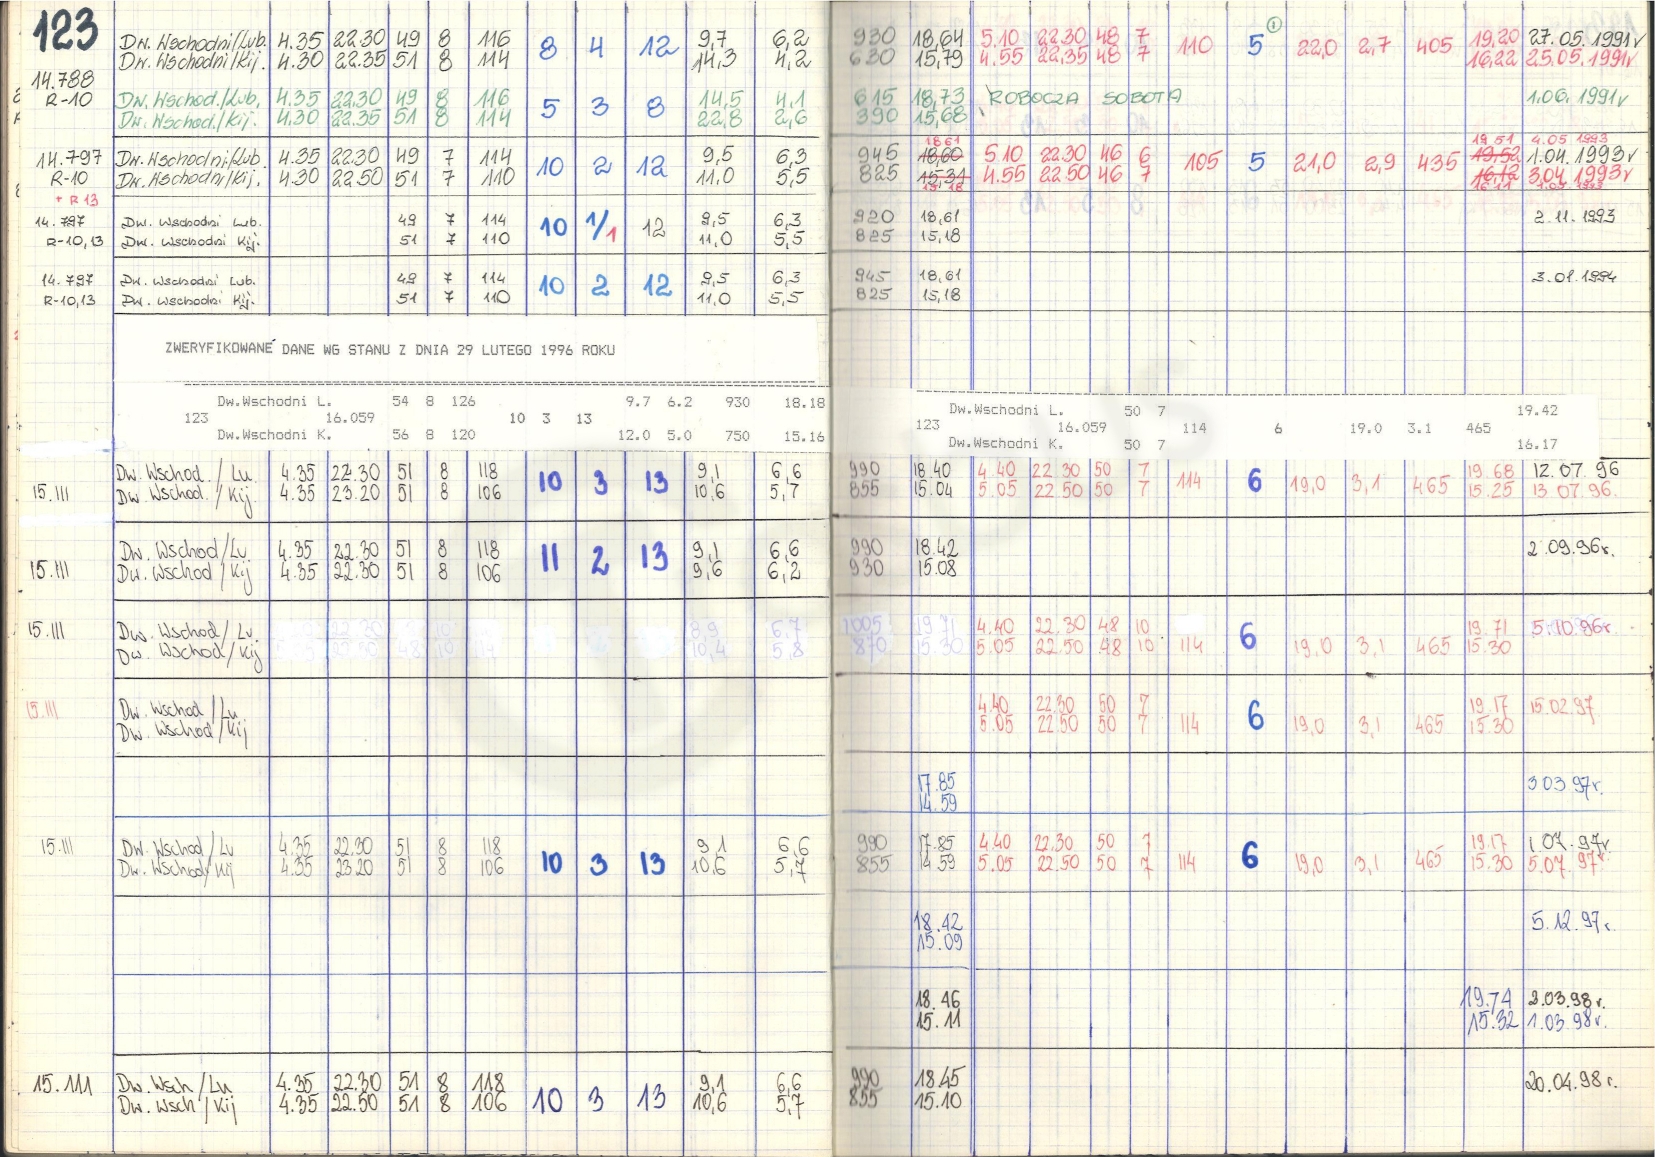 123
Dw. Wschodni/Lub. 4.35 22.30 49 8 116 8 4 12 9,7 6,2 930 18,64 5.10 22.30 48 7 110 5 ① 22,0 2,7 405 19,20 27.05.1991r
Dw. Wschodni/Kij. 4.30 22.35 51 8 114 14,3 4,2 630 15,79 4.55 22,35 48 7 16,22 25.05.1991r
14.788
R-10
Dw. Wschod./Lub. 4.35 22.30 49 8 116 5 3 8 14,5 4,1 615 18,73 ROBOCZA SOBOTA 1.06.1991r
Dw. Wschod./Kij. 4.30 22.35 51 8 114 22,8 2,6 390 15,68
18 61 19 51 4.05 1993
14.797 Dw. Wschodni/Lub. 4.35 22.30 49 7 114 10 2 12 9,5 6,3 945 18,60 5.10 22.30 46 6 105 5 21,0 2,9 435 19,52 1.04.1993r
R-10 Dw. Wschodni/Kij. 4.30 22.50 51 7 110 11,0 5,5 825 15,31 4.55 22.50 46 7 16,12 3.04.1993r
+ R 13 15 18 16 11
14.797 Dw. Wschodni Lub. 49 7 114 10 1/1 12 9,5 6,3 920 18,61 2.11.1993
R-10,13 Dw. Wschodni Kij. 51 7 110 11,0 5,5 825 15,18
14.797 Dw. Wschodni Lub. 49 7 114 10 2 12 9,5 6,3 945 18,61 3.01.1994
R-10,13 Dw. Wschodni Kij. 51 7 110 11,0 5,5 825 15,18
ZWERYFIKOWANE DANE WG STANU Z DNIA 29 LUTEGO 1996 ROKU
Dw.Wschodni L. 54 8 126 9.7 6.2 930 18.18
123 16.059 10 3 13
Dw.Wschodni K. 56 8 120 12.0 5.0 750 15.16
Dw.Wschodni L. 50 7 19.42
123 16.059 114 6 19.0 3.1 465
Dw.Wschodni K. 50 7 16.17
Dw. Wschod./Lu. 4.35 22.30 51 8 118 10 3 13 9,1 6,6 990 18.40 4.40 22.30 50 7 114 6 19,0 3,1 465 19.68 12.07.96
15.III Dw. Wschod./Kij. 4.35 23.20 51 8 106 10,6 5,7 855 15.04 5.05 22.50 50 7 15.25 13.07.96.
Dw. Wschod/Lu 4.35 22.30 51 8 118 11 2 13 9,1 6,6 990 18.42 2.09.96r.
15.III Dw. Wschod/Kij 4.35 22.30 51 8 106 9,6 6,2 930 15.08
15.III Dw. Wschod/Lu. 8,9 6,7 1005 19.71 4.40 22.30 48 10 114 6 19,0 3,1 465 19.71 5.10.96r
Dw. Wschod/Kij 10,4 5,8 870 15.30 5.05 22.50 48 10 15.30
15.III Dw. Wschod/Lu 4.40 22.30 50 7 114 6 19,0 3,1 465 19.17 15.02.97
Dw. Wschod/Kij 5.05 22.50 50 7 15.30
17.85 3.03.97r.
14.59
15.III Dw. Wschod/Lu 4.35 22.30 51 8 118 10 3 13 9,1 6,6 990 17.85 4.40 22.30 50 7 114 6 19,0 3,1 465 19.17 1.07.97r.
Dw. Wschod/Kij 4.35 23.20 51 8 106 10,6 5,7 855 14.59 5.05 22.50 50 7 15.30 5.07.97r.
18.42 5.12.97r.
15.09
18.46 19.74 2.03.98r.
15.11 15.32 1.03.98r.
15.111 Dw. Wsch/Lu 4.35 22.30 51 8 118 10 3 13 9,1 6,6 990 18.45 20.04.98r.
Dw. Wsch/Kij 4.35 22.50 51 8 106 10,6 5,7 855 15.10